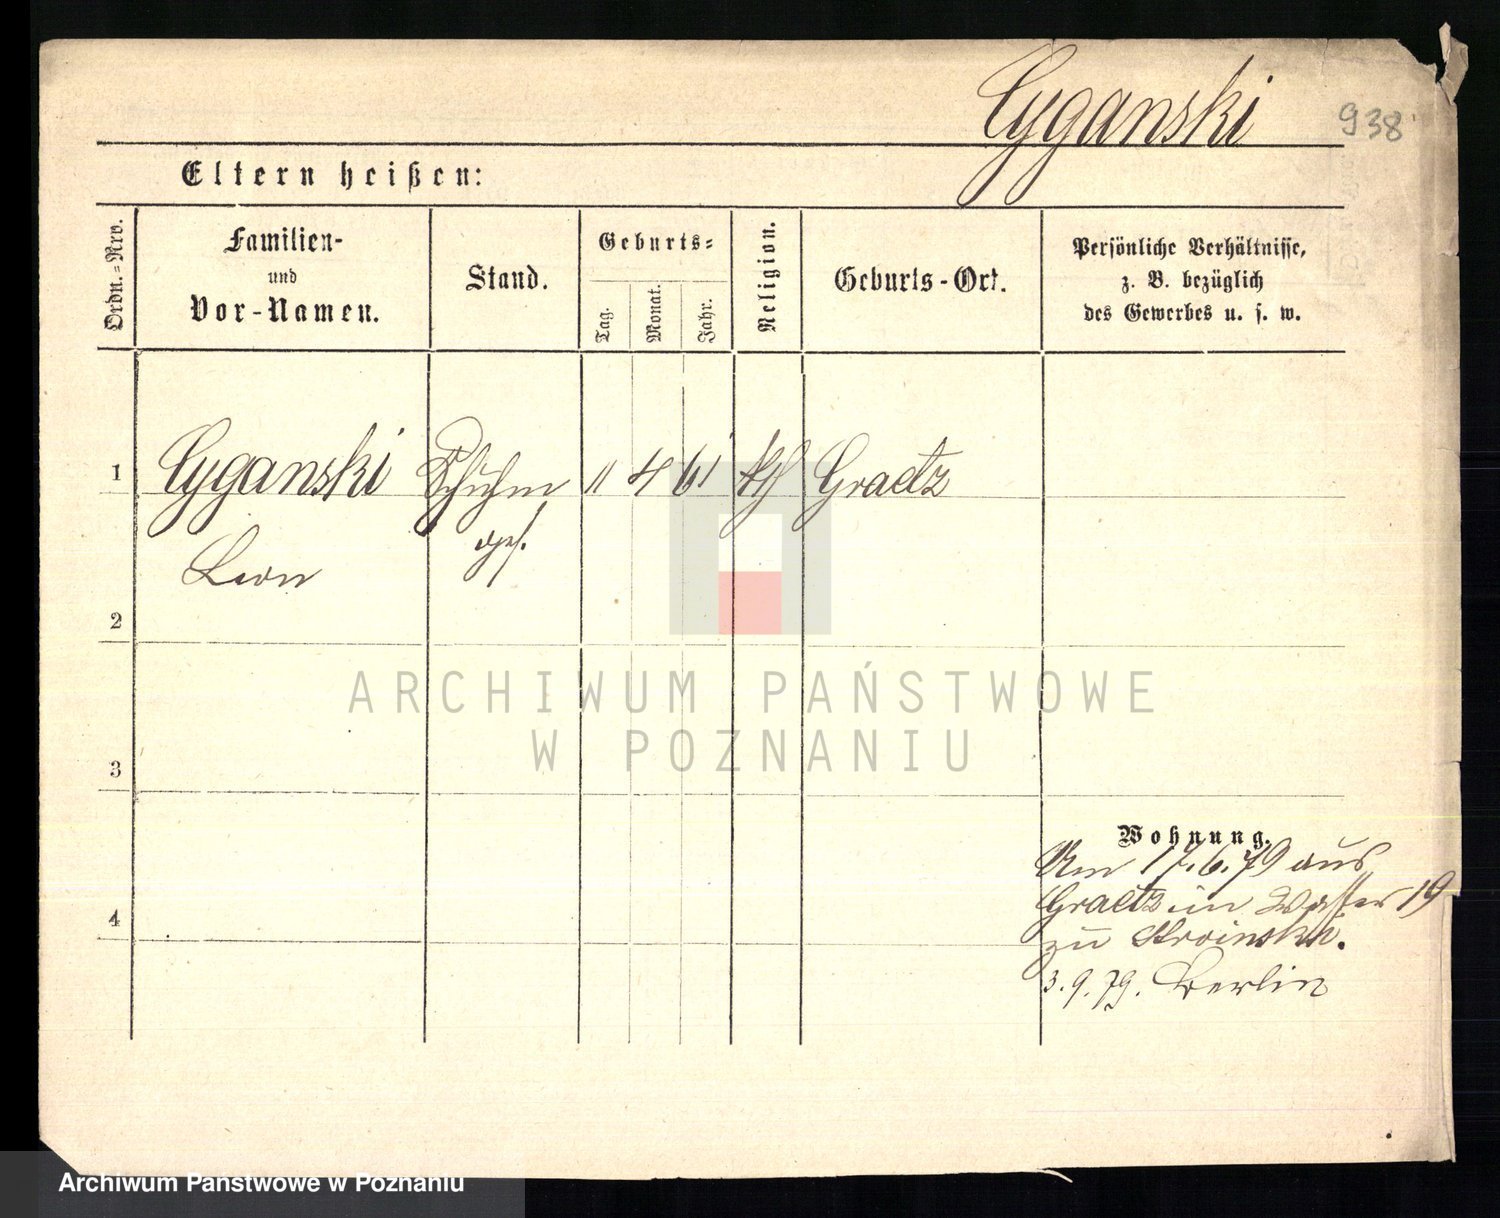 Cyganski
938
Eltern heißen:
Ordn.=Nrv.
Familien-
und
Vor-Namen.
Stand.
Geburts=
Tag.
Monat.
Jahr.
Religion.
Geburts-Ort.
Persönliche Verhältnisse,
z. B. bezüglich
des Gewerbes u. s. w.
1
Cyganski Schuhm 11 4 61 kth Graetz
ges.
Leon
2
3
ARCHIWUM PAŃSTWOWE
W POZNANIU
Wohnung.
Am 17.6.79 aus
Graetz in Wasser 19
4
zu
3.9.79. Berlin
Archiwum Państwowe w Poznaniu